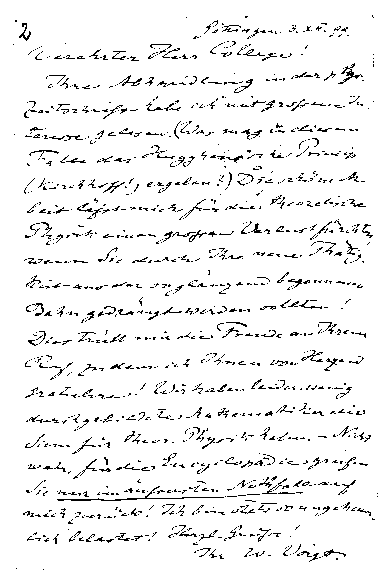 2
Göttingen 3. XII. 99.
Verehrter Herr College!
Ihre Abhandlung in der phys.
Zeitschrift habe ich mit grossem In-
teresse gelesen. (Was mag in diesem
Falle das Huyghens'sche Princip
(Kirchhoff!) ergeben?) Die schöne Ar-
beit lässt mich für die theoretische
Physik einen grossen Verlust fürchten,
wenn Sie durch Ihre neue Thätig-
keit aus der so glänzend begonnenen
Bahn gedrängt werden sollten!
Dies trübt mir die Freude an Ihrem
Ruf, zu dem ich Ihnen von Herzen
gratuliere! Wir haben leider wenig
durchgebildete Mathematiker die
Sinn für theor. Physik haben. – Nicht
wahr, für die Encyclopädie greifen
Sie nur im äussersten Nothfalle auf
mich zurück! Ich bin stets so ungeheuer-
lich belastet! Herzl. Grüsse!
Ihr W. Voigt.